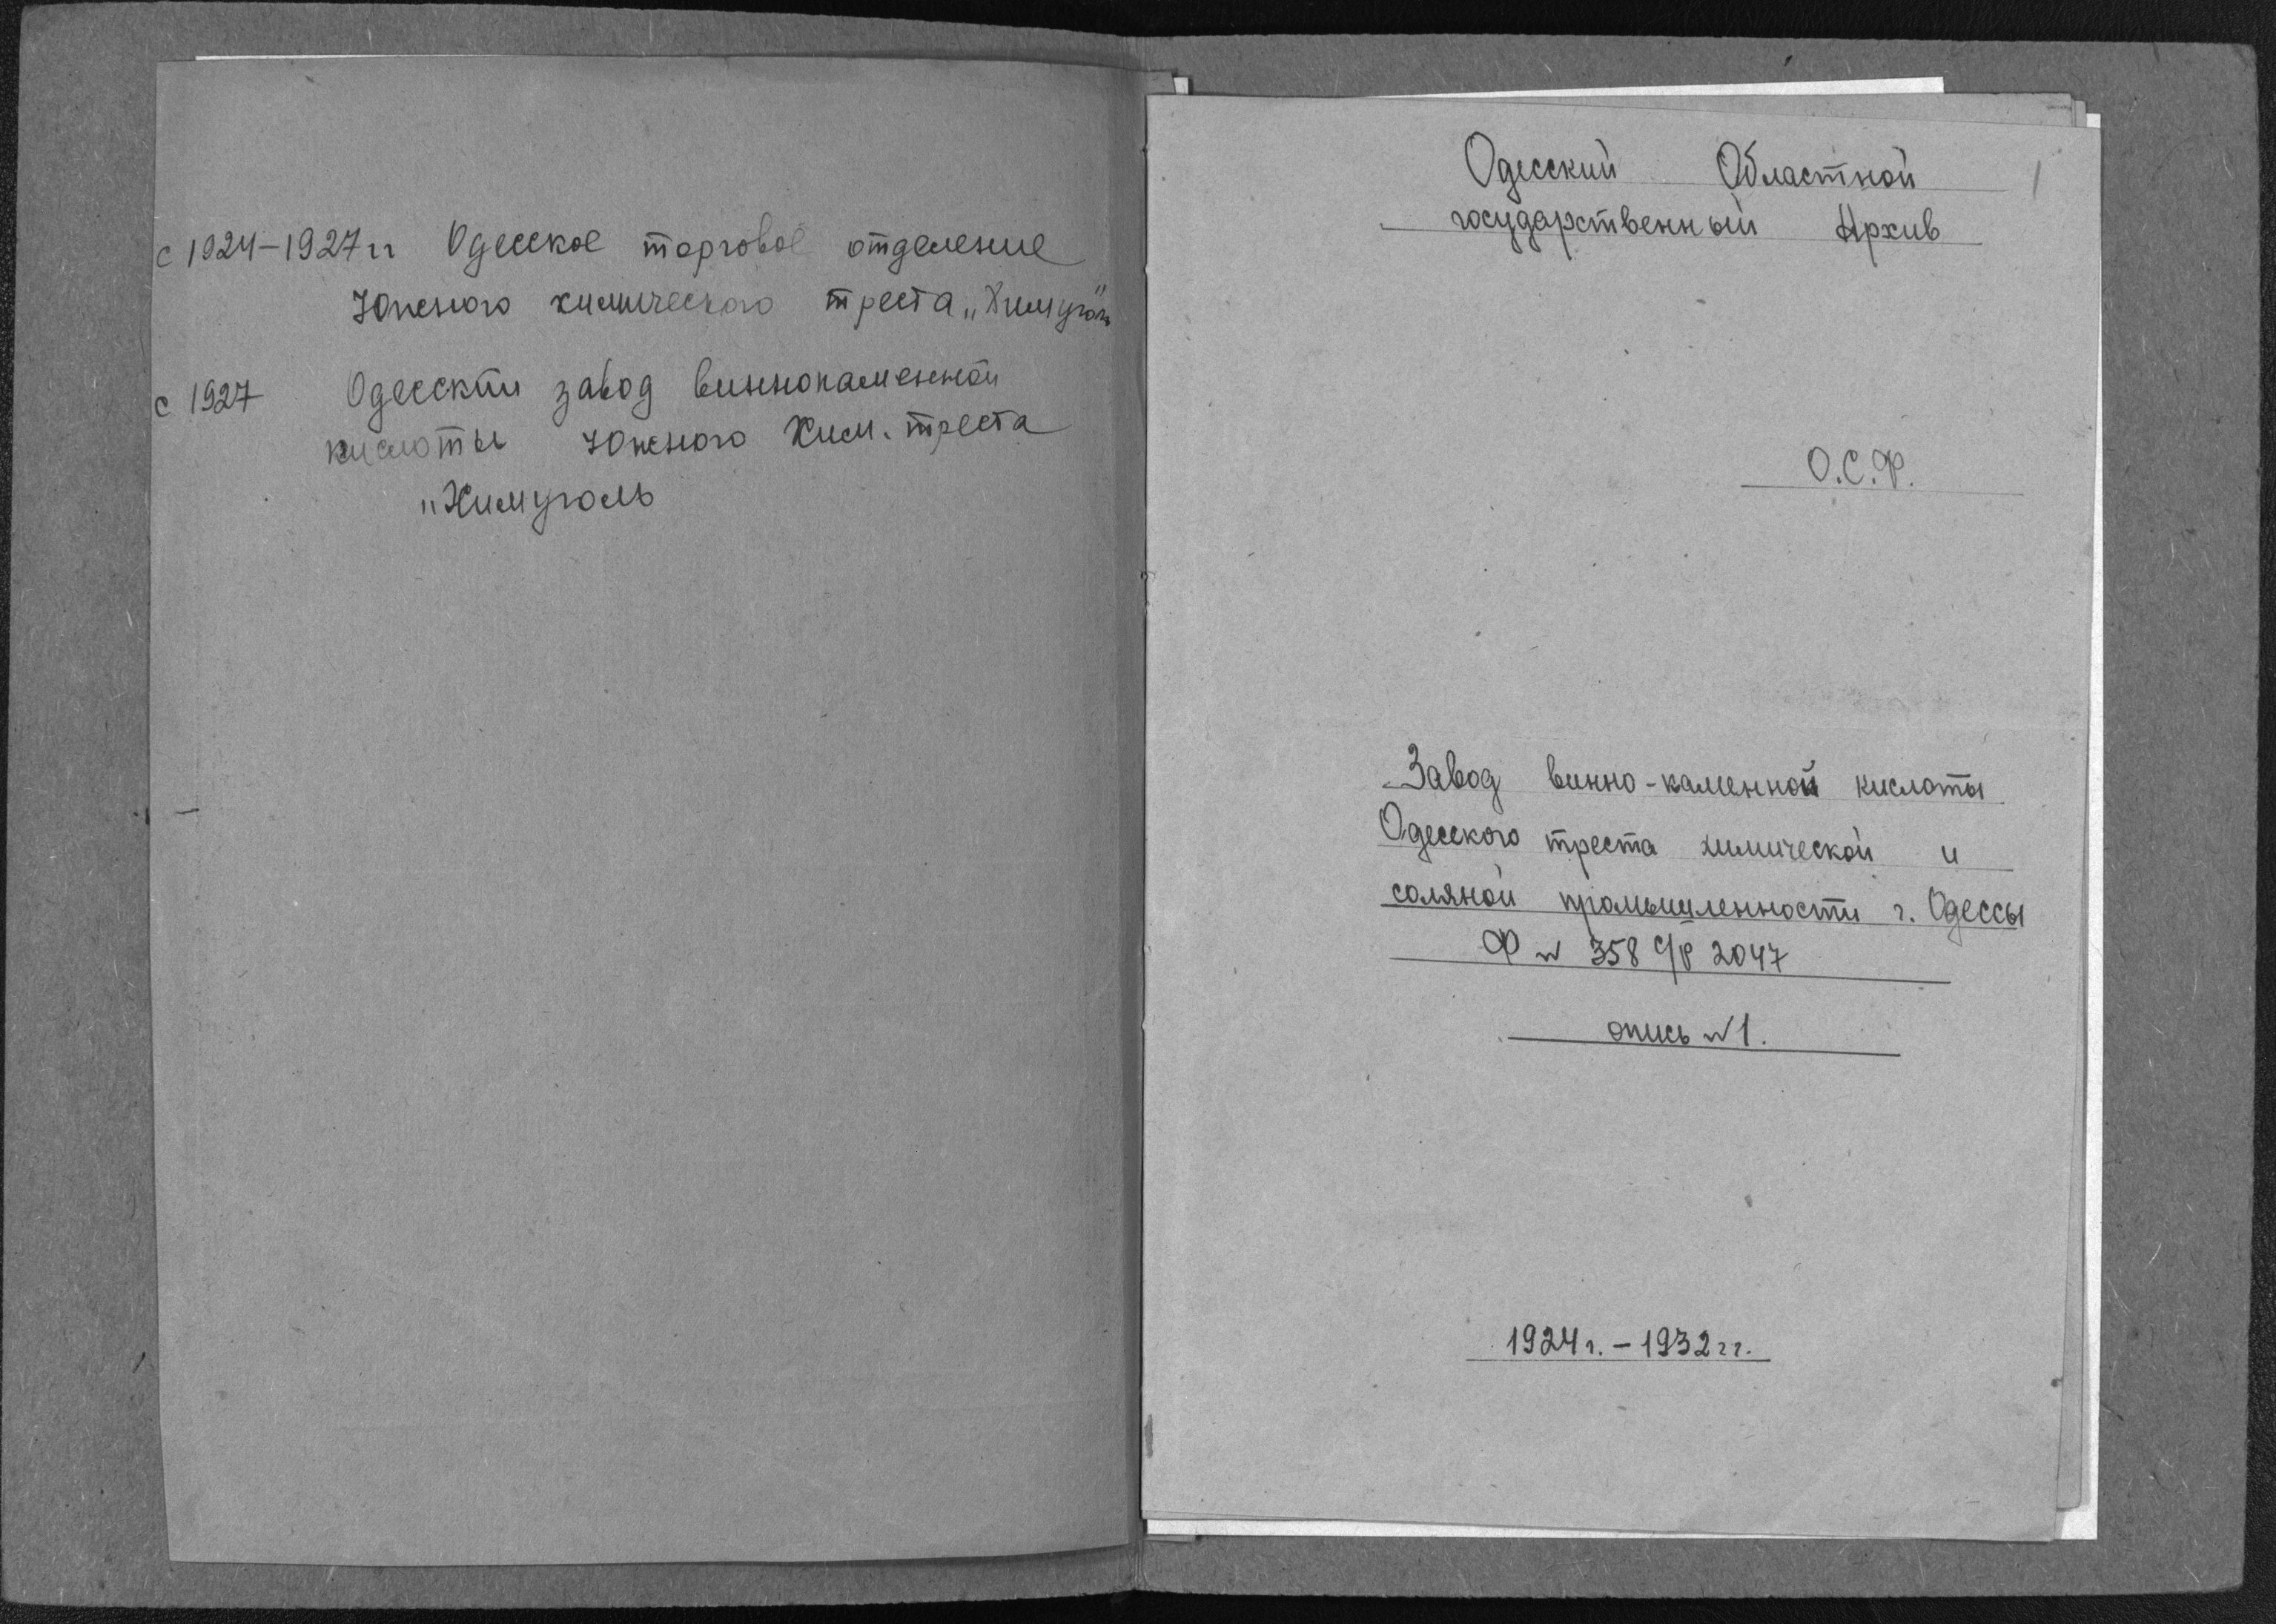 с 1924-1927 гг Одесское торговое отделение
Южного химического треста „Химуголь"
с 1927 Одесский завод виннокаменной
кислоты Южного Хим. треста
„Химуголь
1
Одесский Областной
государственный Архив
О.С.Ф.
Завод винно-каменной кислоты
Одесского треста химической и
соляной промышленности г. Одессы
Ф № 358 с/р 2047
опись №1.
1924г. - 1932гг.